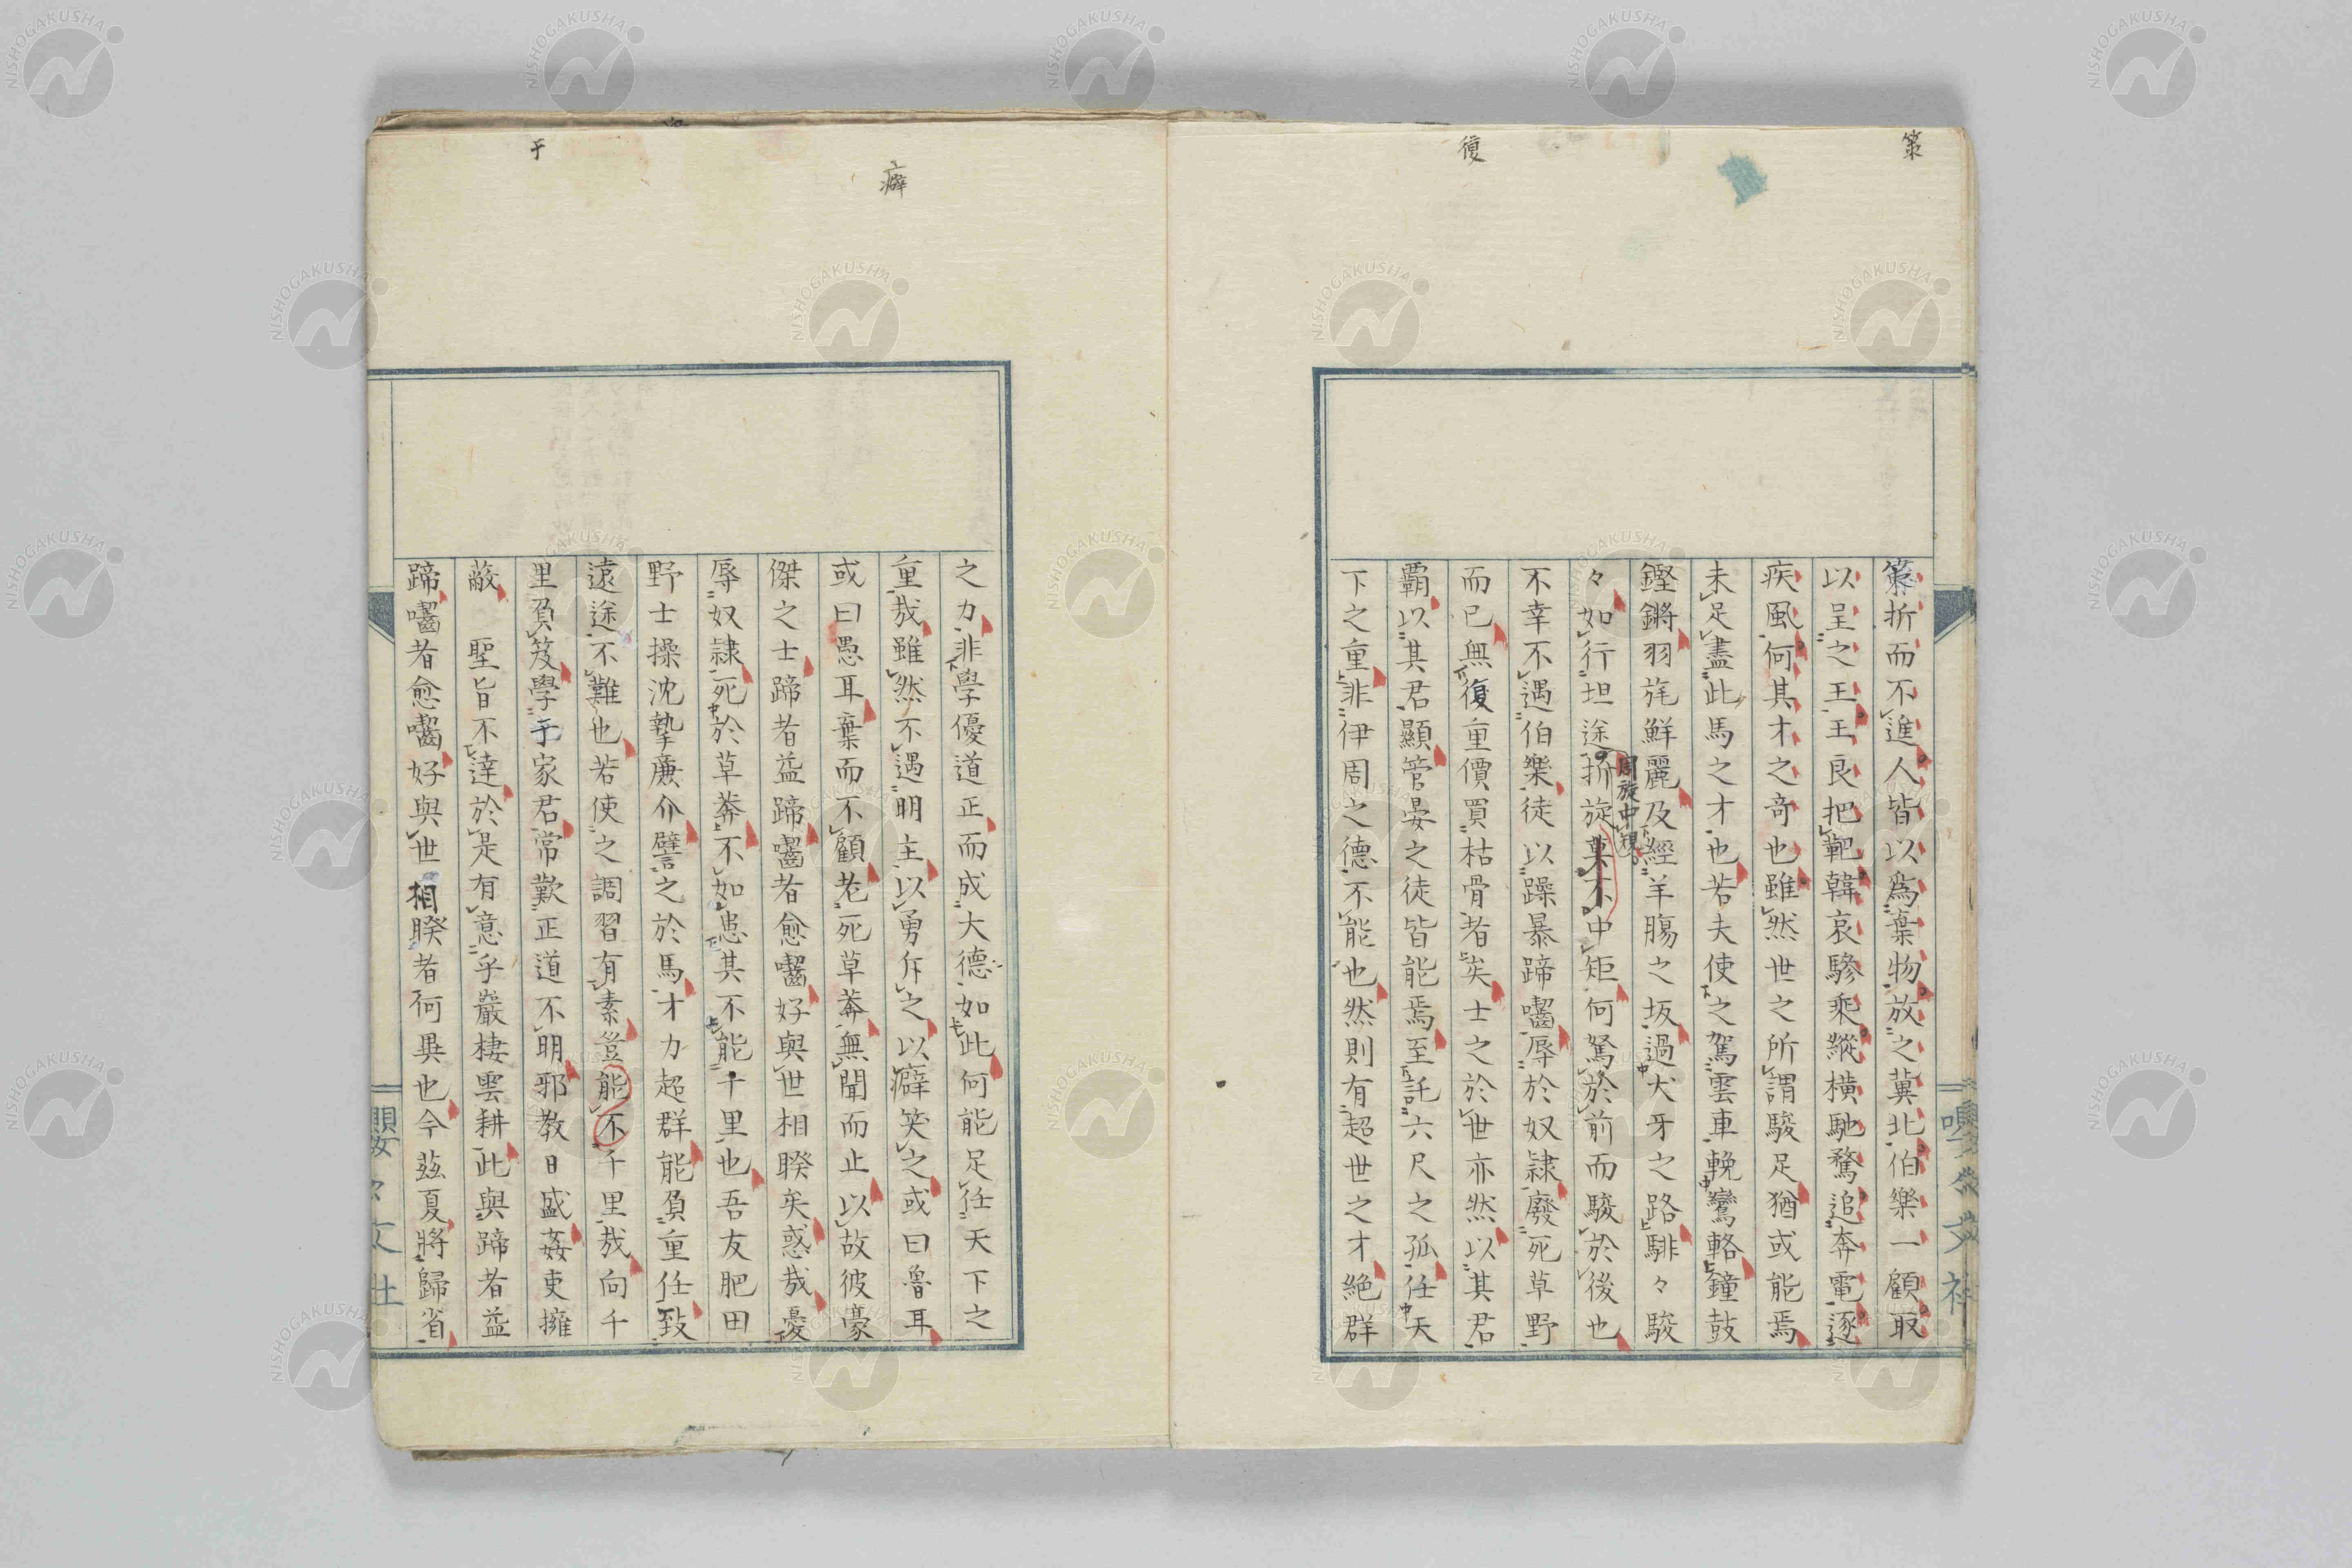 策
復
策折而不進人皆以為棄物放之冀北伯樂一顧取
以呈之王王良把靶韓哀驂乘縱横馳騖追奔電逐
疾風何其才之奇也雖然世之所謂駿足猶或能焉
未足盡此馬之才也若夫使之駕雲車輓鸞輅鐘鼓
鏗鏘羽旄鮮麗及經羊腸之坂過犬牙之路騑々駿
周旋中規
々如行坦途折旋莫不中矩何駑於前而駿於後也
不幸不遇伯樂徒以躁暴蹄囓辱於奴隷廢死草野
而已無復重價買枯骨者矣士之於世亦然以其君
霸以其君顯管晏之徒皆能焉至託六尺之孤任天
下之重非伊周之德不能也然則有超世之才絶群
癖
于
之力非學優道正而成大德如此何能足任天下之
重哉雖然不遇明主以勇斥之以癖笑之或曰魯耳
或曰愚耳棄而不顧老死草莽無聞而止以故彼豪
傑之士蹄者益蹄囓者愈囓好與世相睽矣惑哉憂
辱奴隷死於草莽不如患其不能千里也吾友肥田
野士操沈摯廉介譬之於馬才力超群能負重任致
遠途不難也若使之調習有素豈能不千里哉向千
里負笈學于家君常歎正道不明邪教日盛姦吏擁
蔽　聖旨不達於是有意乎巖棲雲耕此與蹄者益
蹄囓者愈囓好與世相睽者何異也今茲夏將歸省
NISHOGAKUSHA